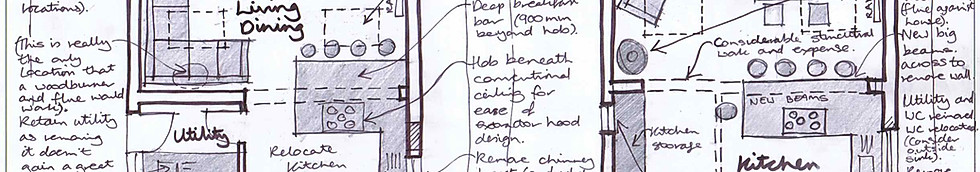 locations).
(This is really
the only
location that
a woodburner
and flue would
work).
Retain utility
as removing
it doesn't
gain a great
Living
Dining
Utility
Relocate
Kitchen
Deep breakfast
bar (900mm
beyond hob).
Hob beneath
conventional
ceiling for
ease of
extractor hood
design.
Remove chimney
Considerable structural
work and expense.
NEW BEAMS
Kitchen
storage
Kitchen
(flue against
house).
New big
beams
across to
remove wall
Utility and
WC removed,
WC relocated
(consider
outside
sink).
Remove